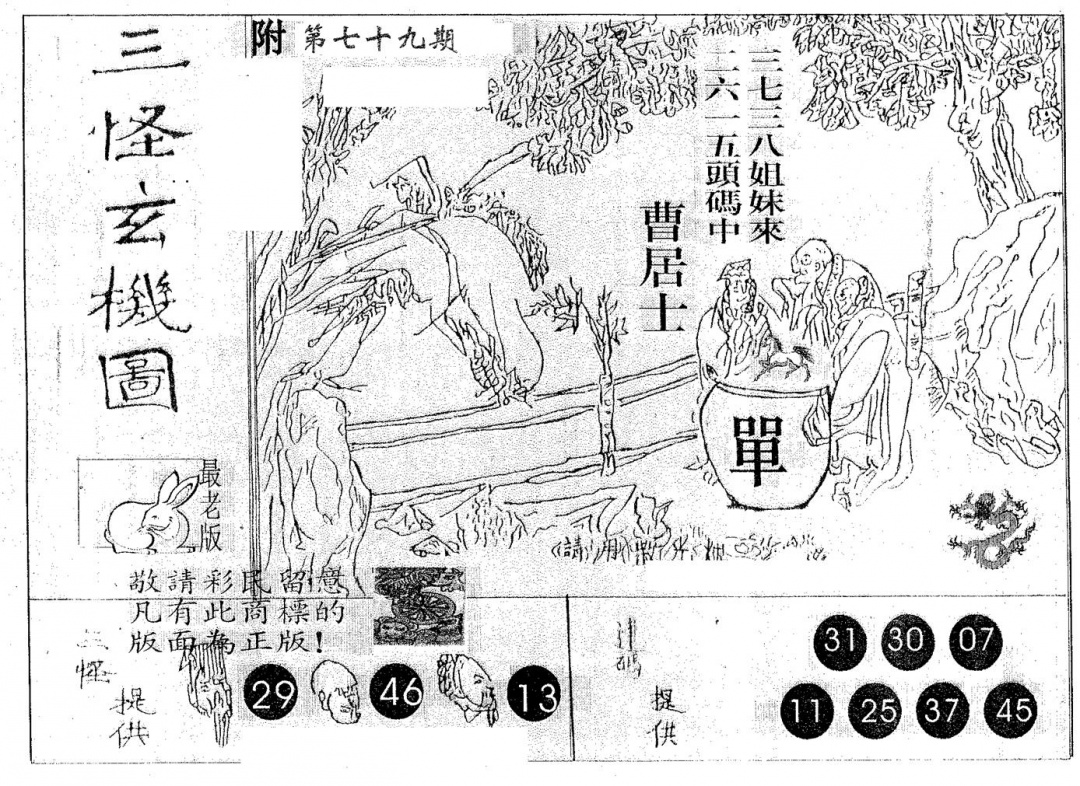 三怪玄機圖
附 第七十九期
三七三八姐妹來
二六一五頭碼中
曹居士
單
最老版
敬請彩民留意
凡有此商標的
版面為正版!
三怪
提供
29 46 13
提供
31 30 07
11 25 37 45